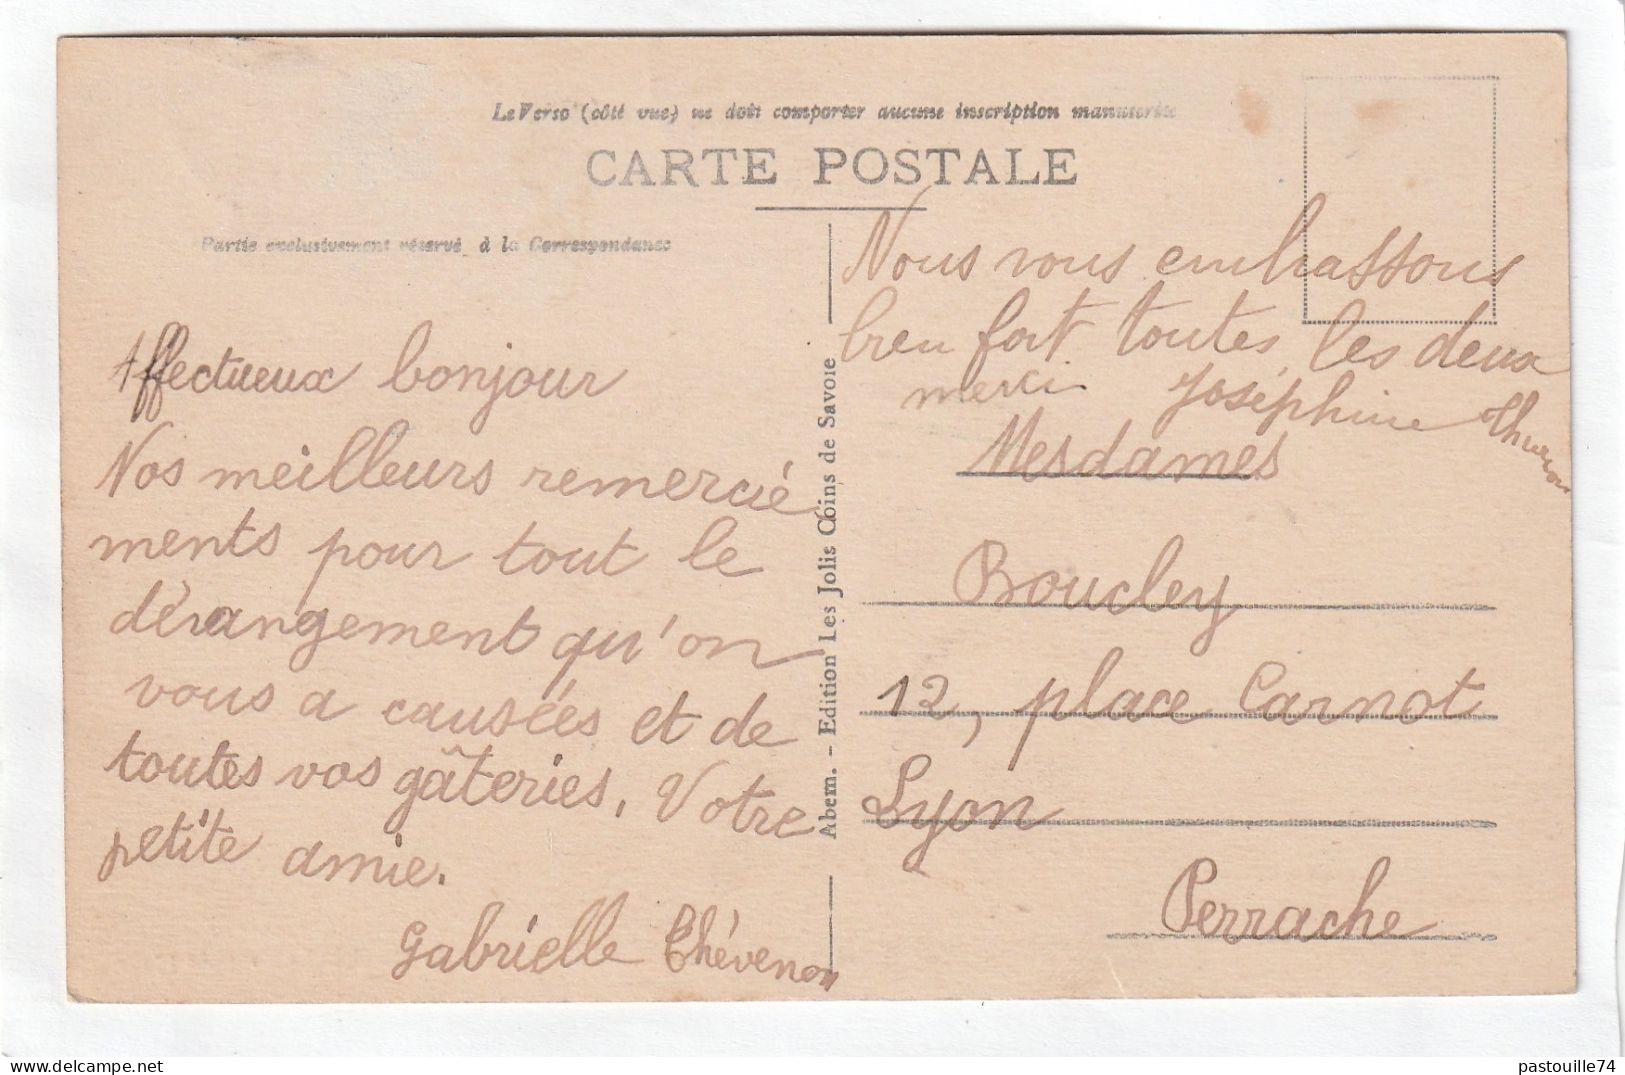 Le Verso (côté vue) ne doit comporter aucune inscription manuscrite
CARTE POSTALE
Partie exclusivement réservé à la Correspondance
Affectueux bonjour
Nos meilleurs remercié
ments pour tout le
dérangement qu'on
vous a causées et de
toutes vos gâteries. Votre
petite amie.
Gabrielle Thévenon
Abem. - Edition Les Jolis Coins de Savoie
Nous vous embrassons
bien fort toutes les deux
merci Joséphine
Mesdames
Boucley
12, place Carnot
Lyon
Perrache
pastouille74